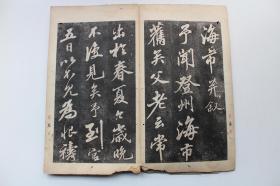 海市并叙
予闻登州海市
舊矣父老云常
出於春夏今歲晚
不復見矣予到官
五日以不見為恨禱